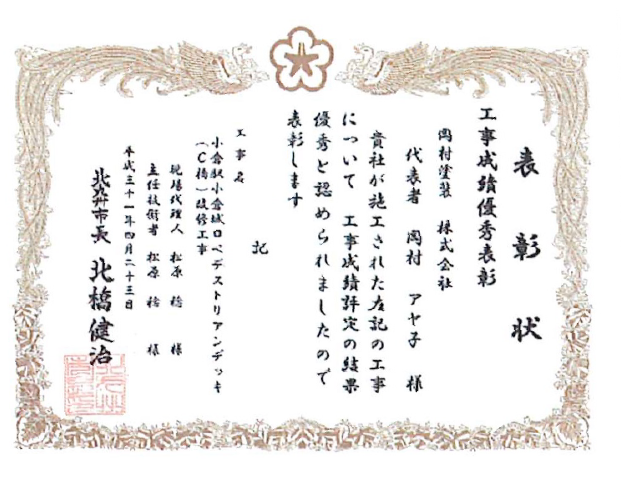 表彰状
工事成績優秀表彰
岡村塗装 株式会社
代表者 岡村 アヤ子 様
貴社が施工された左記の工事
について 工事成績評定の結果
優秀と認められましたので
表彰します
記
工事名
小倉駅小倉城口ペデストリアンデッキ
(C橋)改修工事
現場代理人 松原 稔 様
主任技術者 松原 稔 様
平成三十一年四月二十三日
北九州市長 北橋健治